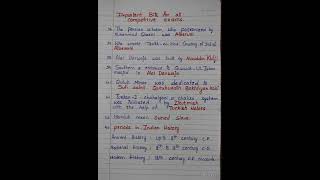 Important Bits for all
competitive exams.
The persian scholar, who patronized by
Muhammad Ghazni was Alberuni
Who wrote Tarikh-al-Hind (History of India)
Alberuni
Alai Darwaja built by Alauddin Khilji
Southern entrance to Quwwat-ul-Islam
masjid is Alai Darwaja
Qutub Minar was dedicated to
Sufi saint Qutubuddin Bakhtiyar Kaki
Turkan-I-chahalgani or chalisa system
was initiated by Iltutmish
with the help of Turkish Nobles
Mamluk means Owned Slave
periods in Indian History
Ancient History : up to 8th century C.E.
Medieval History : 8th to 18th century C.E.
Modern History : 18th century C.E. onwards